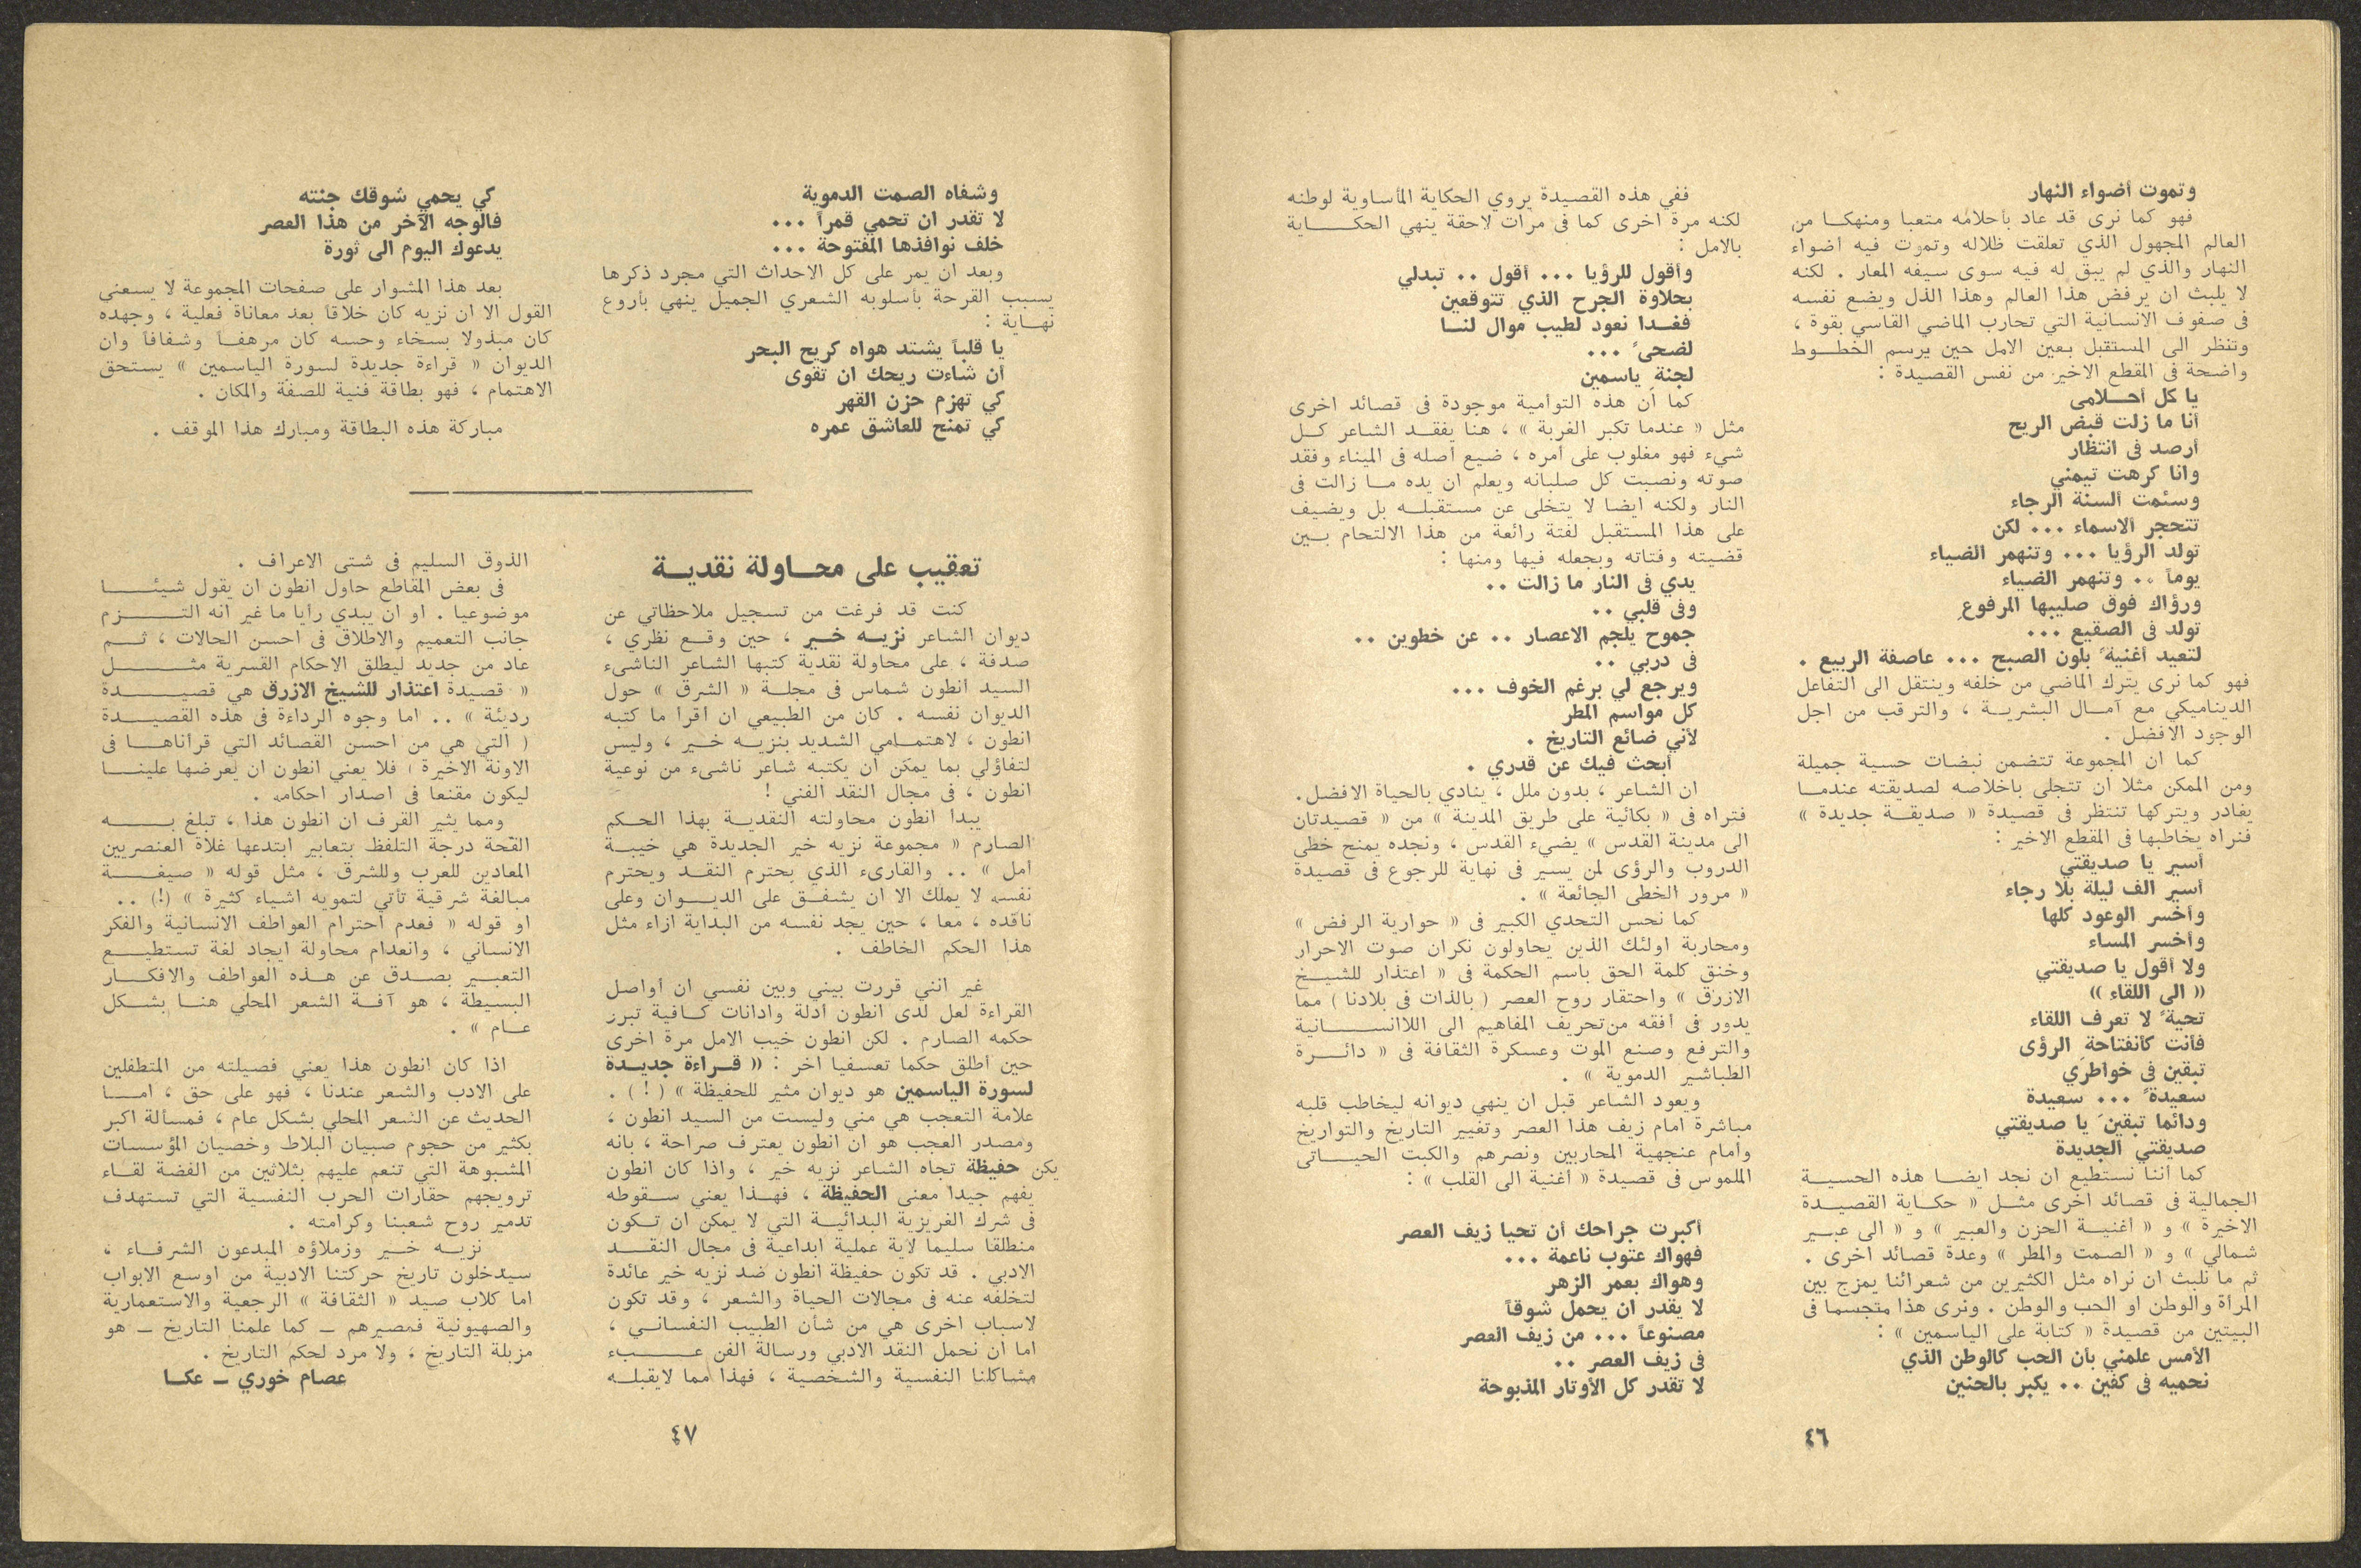 وتموت أضواء النهار
فهو كما نرى قد عاد بأحلامه متعبا ومنهكا من
العالم المجهول الذي تعلقت ظلاله وتموت فيه اضواء
النهار والذي لم يبق له فيه سوى سيفه المعار . لكنه
لا يلبث ان يرفض هذا العالم وهذا الذل ويضع نفسه
فى صفوف الانسانية التي تحارب الماضي القاسي بقوة ،
وتنظر الى المستقبل بعين الامل حين يرسم الخطوط
واضحة فى المقطع الاخير من نفس القصيدة :
يا كل أحلامى
أنا ما زلت قبض الريح
أرصد فى انتظار
وانا كرهت تيمني
وسئمت ألسنة الرجاء
تتحجر الاسماء ... لكن
تولد الرؤيا ... وتنهمر الضياء
يوماً .. وتنهمر الضياء
ورؤاك فوق صليبها المرفوعِ
تولد فى الصقيع ...
لتعيد أغنيةً بلون الصبح ... عاصفة الربيع .
فهو كما نرى يترك الماضي من خلفه وينتقل الى التفاعل
الديناميكي مع آمال البشرية ، والترقب من اجل
الوجود الافضل .
كما ان المجموعة تتضمن نبضات حسية جميلة
ومن الممكن مثلا ان تتجلى باخلاصه لصديقته عندما
يغادر ويتركها تنتظر فى قصيدة « صديقة جديدة »
فنراه يخاطبها فى المقطع الاخير :
أسير يا صديقتي
أسير الف ليلة بلا رجاء
وأخسر الوعود كلها
وأخسر المساء
ولا أقول يا صديقتي
« الى اللقاء »
تحيةً لا تعرف اللقاء
فأنت كأنفتاحةِ الرؤى
تبقين فى خواطري
سعيدةً ... سعيدة
ودائما تبقينَ يا صديقتي
صديقتي الجديدة
كما أننا نستطيع ان نجد ايضا هذه الحسية
الجمالية فى قصائد اخرى مثل « حكاية القصيدة
الاخيرة » و « أغنية الحزن والعبير » و « الى عبير
شمالي » و « الصمت والمطر » وعدة قصائد اخرى .
ثم ما نلبث ان نراه مثل الكثيرين من شعرائنا يمزج بين
المرأة والوطن او الحب والوطن . ونرى هذا متجسما فى
البيتين من قصيدة « كتابة على الياسمين » :
الأمس علمني بأن الحب كالوطن الذي
نحميه فى كفين .. يكبر بالحنين
ففي هذه القصيدة يروي الحكاية المأساوية لوطنه
لكنه مرة اخرى كما فى مرات لاحقة ينهي الحكاية
بالامل :
وأقول للرؤيا ... أقول .. تبدلي
بحلاوة الجرح الذي تتوقعين
فغدا نعود لطيب موال لنا
لضحىً ...
لجنةِ ياسمين
كما أن هذه التوأمية موجودة فى قصائد اخرى
مثل « عندما تكبر الغربة » ، هنا يفقد الشاعر كل
شيء فهو مغلوب على أمره ، ضيع أصله فى الميناء وفقد
صوته ونصبت كل صلبانه ويعلم ان يده ما زالت فى
النار ولكنه ايضا لا يتخلى عن مستقبله بل ويضيف
على هذا المستقبل لفتة رائعة من هذا الالتحام بين
قضيته وفتاته ويجعله فيها ومنها :
يدي فى النار ما زالت ..
وفى قلبي ..
جموح يلجم الاعصار .. عن خطوين ..
فى دربي ..
ويرجع لي برغم الخوف ...
كل مواسم المطر
لأني ضائع التاريخ .
أبحث فيك عن قدري .
ان الشاعر ، بدون ملل ، ينادي بالحياة الافضل.
فتراه فى « بكائية على طريق المدينة » من « قصيدتان
الى مدينة القدس » يضيء القدس ، ونجده يمنح خطى
الدروب والرؤى لمن يسير فى نهاية للرجوع فى قصيدة
« مرور الخطى الجائعة » .
كما نحس التحدي الكبير فى « حوارية الرفض »
ومحاربة اولئك الذين يحاولون نكران صوت الاحرار
وخنق كلمة الحق باسم الحكمة فى « اعتذار للشيخ
الازرق » واحتقار روح العصر ( بالذات فى بلادنا ) مما
يدور فى أفقه من تحريف المفاهيم الى اللاانسانية
والترفع وصنع الموت وعسكرة الثقافة فى « دائرة
الطباشير الدموية » .
ويعود الشاعر قبل ان ينهي ديوانه ليخاطب قلبه
مباشرة امام زيف هذا العصر وتغيير التاريخ والتواريخ
وأمام عنجهية المحاربين ونصرهم والكبت الحياتى
الملموس فى قصيدة « أغنية الى القلب » :
أكبرت جراحك أن تحيا زيف العصر
فهواك عتوب ناعمة ...
وهواك بعمر الزهر
لا يقدر ان يحمل شوقاً
مصنوعاً ... من زيف العصر
فى زيف العصر ..
لا تقدر كل الأوتار المذبوحة
٤٦
وشفاه الصمت الدموية
لا تقدر ان تحمي قمراً ...
خلف نوافذها المفتوحة ...
وبعد ان يمر على كل الاحداث التي مجرد ذكرها
يسبب القرحة بأسلوبه الشعري الجميل ينهي بأروع
نهاية :
يا قلباً يشتد هواه كريح البحر
أن شاءت ريحك ان تقوى
كي تهزم حزن القهر
كي تمنح للعاشق عمره
كي يحمي شوقك جنته
فالوجه الآخر من هذا العصر
يدعوك اليوم الى ثورة
بعد هذا المشوار على صفحات المجموعة لا يسعنى
القول الا ان نزيه كان خلاقاً بعد معاناة فعلية ، وجهده
كان مبذولا بسخاء وحسه كان مرهفاً وشفافاً وان
الديوان « قراءة جديدة لسورة الياسمين » يستحق
الاهتمام ، فهو بطاقة فنية للصفة والمكان .
مباركة هذه البطاقة ومبارك هذا الموقف .
تعقيب على محاولة نقدية
كنت قد فرغت من تسجيل ملاحظاتي عن
ديوان الشاعر نزيه خير ، حين وقع نظري ،
صدفة ، على محاولة نقدية كتبها الشاعر الناشىء
السيد أنطون شماس فى مجلة « الشرق » حول
الديوان نفسه . كان من الطبيعي ان أقرأ ما كتبه
انطون ، لاهتمامي الشديد بنزيه خير ، وليس
لتفاؤلي بما يمكن أن يكتبه شاعر ناشىء من نوعية
انطون ، فى مجال النقد الفني !
يبدأ انطون محاولته النقدية بهذا الحكم
الصارم « مجموعة نزيه خير الجديدة هي خيبة
أمل » .. والقارىء الذي يحترم النقد ويحترم
نفسه لا يملك الا ان يشفق على الديوان وعلى
ناقده ، معا ، حين يجد نفسه من البداية ازاء مثل
هذا الحكم الخاطف .
غير انني قررت بيني وبين نفسي ان أواصل
القراءة لعل لدى انطون أدلة وادانات كافية تبرز
حكمه الصارم . لكن انطون خيب الامل مرة اخرى
حين أطلق حكما تعسفيا اخر : « قراءة جديدة
لسورة الياسمين هو ديوان مثير للحفيظة » ( ! ) .
علامة التعجب هي مني وليست من السيد انطون ،
ومصدر العجب هو ان انطون يعترف صراحة ، بانه
يكن حفيظة تجاه الشاعر نزيه خير ، واذا كان انطون
يفهم جيدا معنى الحفيظة ، فهذا يعني سقوطه
فى شرك الغريزية البدائية التي لا يمكن ان تكون
منطلقا سليما لأية عملية ابداعية فى مجال النقد
الادبي . قد تكون حفيظة انطون ضد نزيه خير عائدة
لتخلفه عنه فى مجالات الحياة والشعر ، وقد تكون
لاسباب اخرى هي من شأن الطبيب النفساني ،
اما ان نحمل النقد الادبي ورسالة الفن عبء
مشاكلنا النفسية والشخصية ، فهذا مما لايقبله
الذوق السليم فى شتى الاعراف .
فى بعض المقاطع حاول انطون ان يقول شيئا
موضوعيا . او ان يبدي رأيا ما غير انه التزم
جانب التعميم والاطلاق فى احسن الحالات ، ثم
عاد من جديد ليطلق الاحكام القسرية مثل
« قصيدة اعتذار للشيخ الازرق هي قصيدة
رديئة » .. اما وجوه الرداءة فى هذه القصيدة
( التي هي من احسن القصائد التي قرأناها فى
الاونة الاخيرة ) فلا يعني انطون ان يعرضها علينا
ليكون مقنعا فى اصدار احكامه .
ومما يثير القرف ان انطون هذا ، تبلغ به
القحة درجة التلفظ بتعابير ابتدعها غلاة العنصريين
المعادين للعرب وللشرق ، مثل قوله « صيغة
مبالغة شرقية تأتي لتمويه اشياء كثيرة » (!) ..
او قوله « فعدم احترام العواطف الانسانية والفكر
الانساني ، وانعدام محاولة ايجاد لغة تستطيع
التعبير بصدق عن هذه العواطف والافكار
البسيطة ، هو آفة الشعر المحلي هنا بشكل
عام » .
اذا كان انطون هذا يعني فصيلته من المتطفلين
على الادب والشعر عندنا ، فهو على حق ، اما
الحديث عن الشعر المحلي بشكل عام ، فمسألة اكبر
بكثير من حجوم صبيان البلاط وخصيان المؤسسات
المشبوهة التي تنعم عليهم بثلاثين من الفضة لقاء
ترويجهم حقارات الحرب النفسية التي تستهدف
تدمير روح شعبنا وكرامته .
نزيه خير وزملاؤه المبدعون الشرفاء ،
سيدخلون تاريخ حركتنا الادبية من اوسع الابواب
اما كلاب صيد « الثقافة » الرجعية والاستعمارية
والصهيونية فمصيرهم – كما علمنا التاريخ – هو
مزبلة التاريخ ، ولا مرد لحكم التاريخ .
عصام خوري – عكا
٤٧